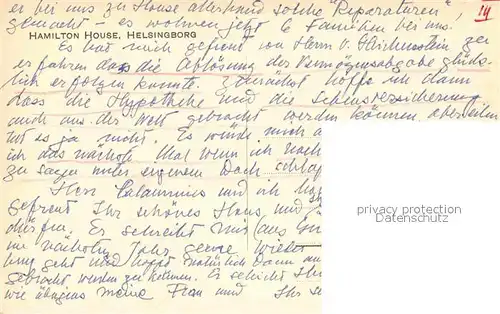 er bei uns zu Hause allerhand solche "Reparaturen",
gemacht - es wohnen jetzt 6 Familien bei uns.
HAMILTON HOUSE, HELSINGBORG
Es hat mich gefreut von Herrn v. zu
erfahren dass die Ablösung der Vermögensabgabe glück-
lich erfolgen konnte. Zunächst hoffe ich dann
dass die Hypotheke und die Lebensversicherung
auch aus der Welt gebracht werden können, aber eilen
tut es ja nicht. Es würde mich
ich das nächste Mal wenn ich nach
zu sagen unter eigenem Dach
Herr Calaminus und ich
gefreut Ihr schönes Haus, und
dürfen. Es schreibt mir aus
im nächsten Jahr gerne wieder
geht und hofft natürlich dann
gebracht werden zu können. Es
wie übrigens meine Frau und Ihr
privacy protection
Datenschutz